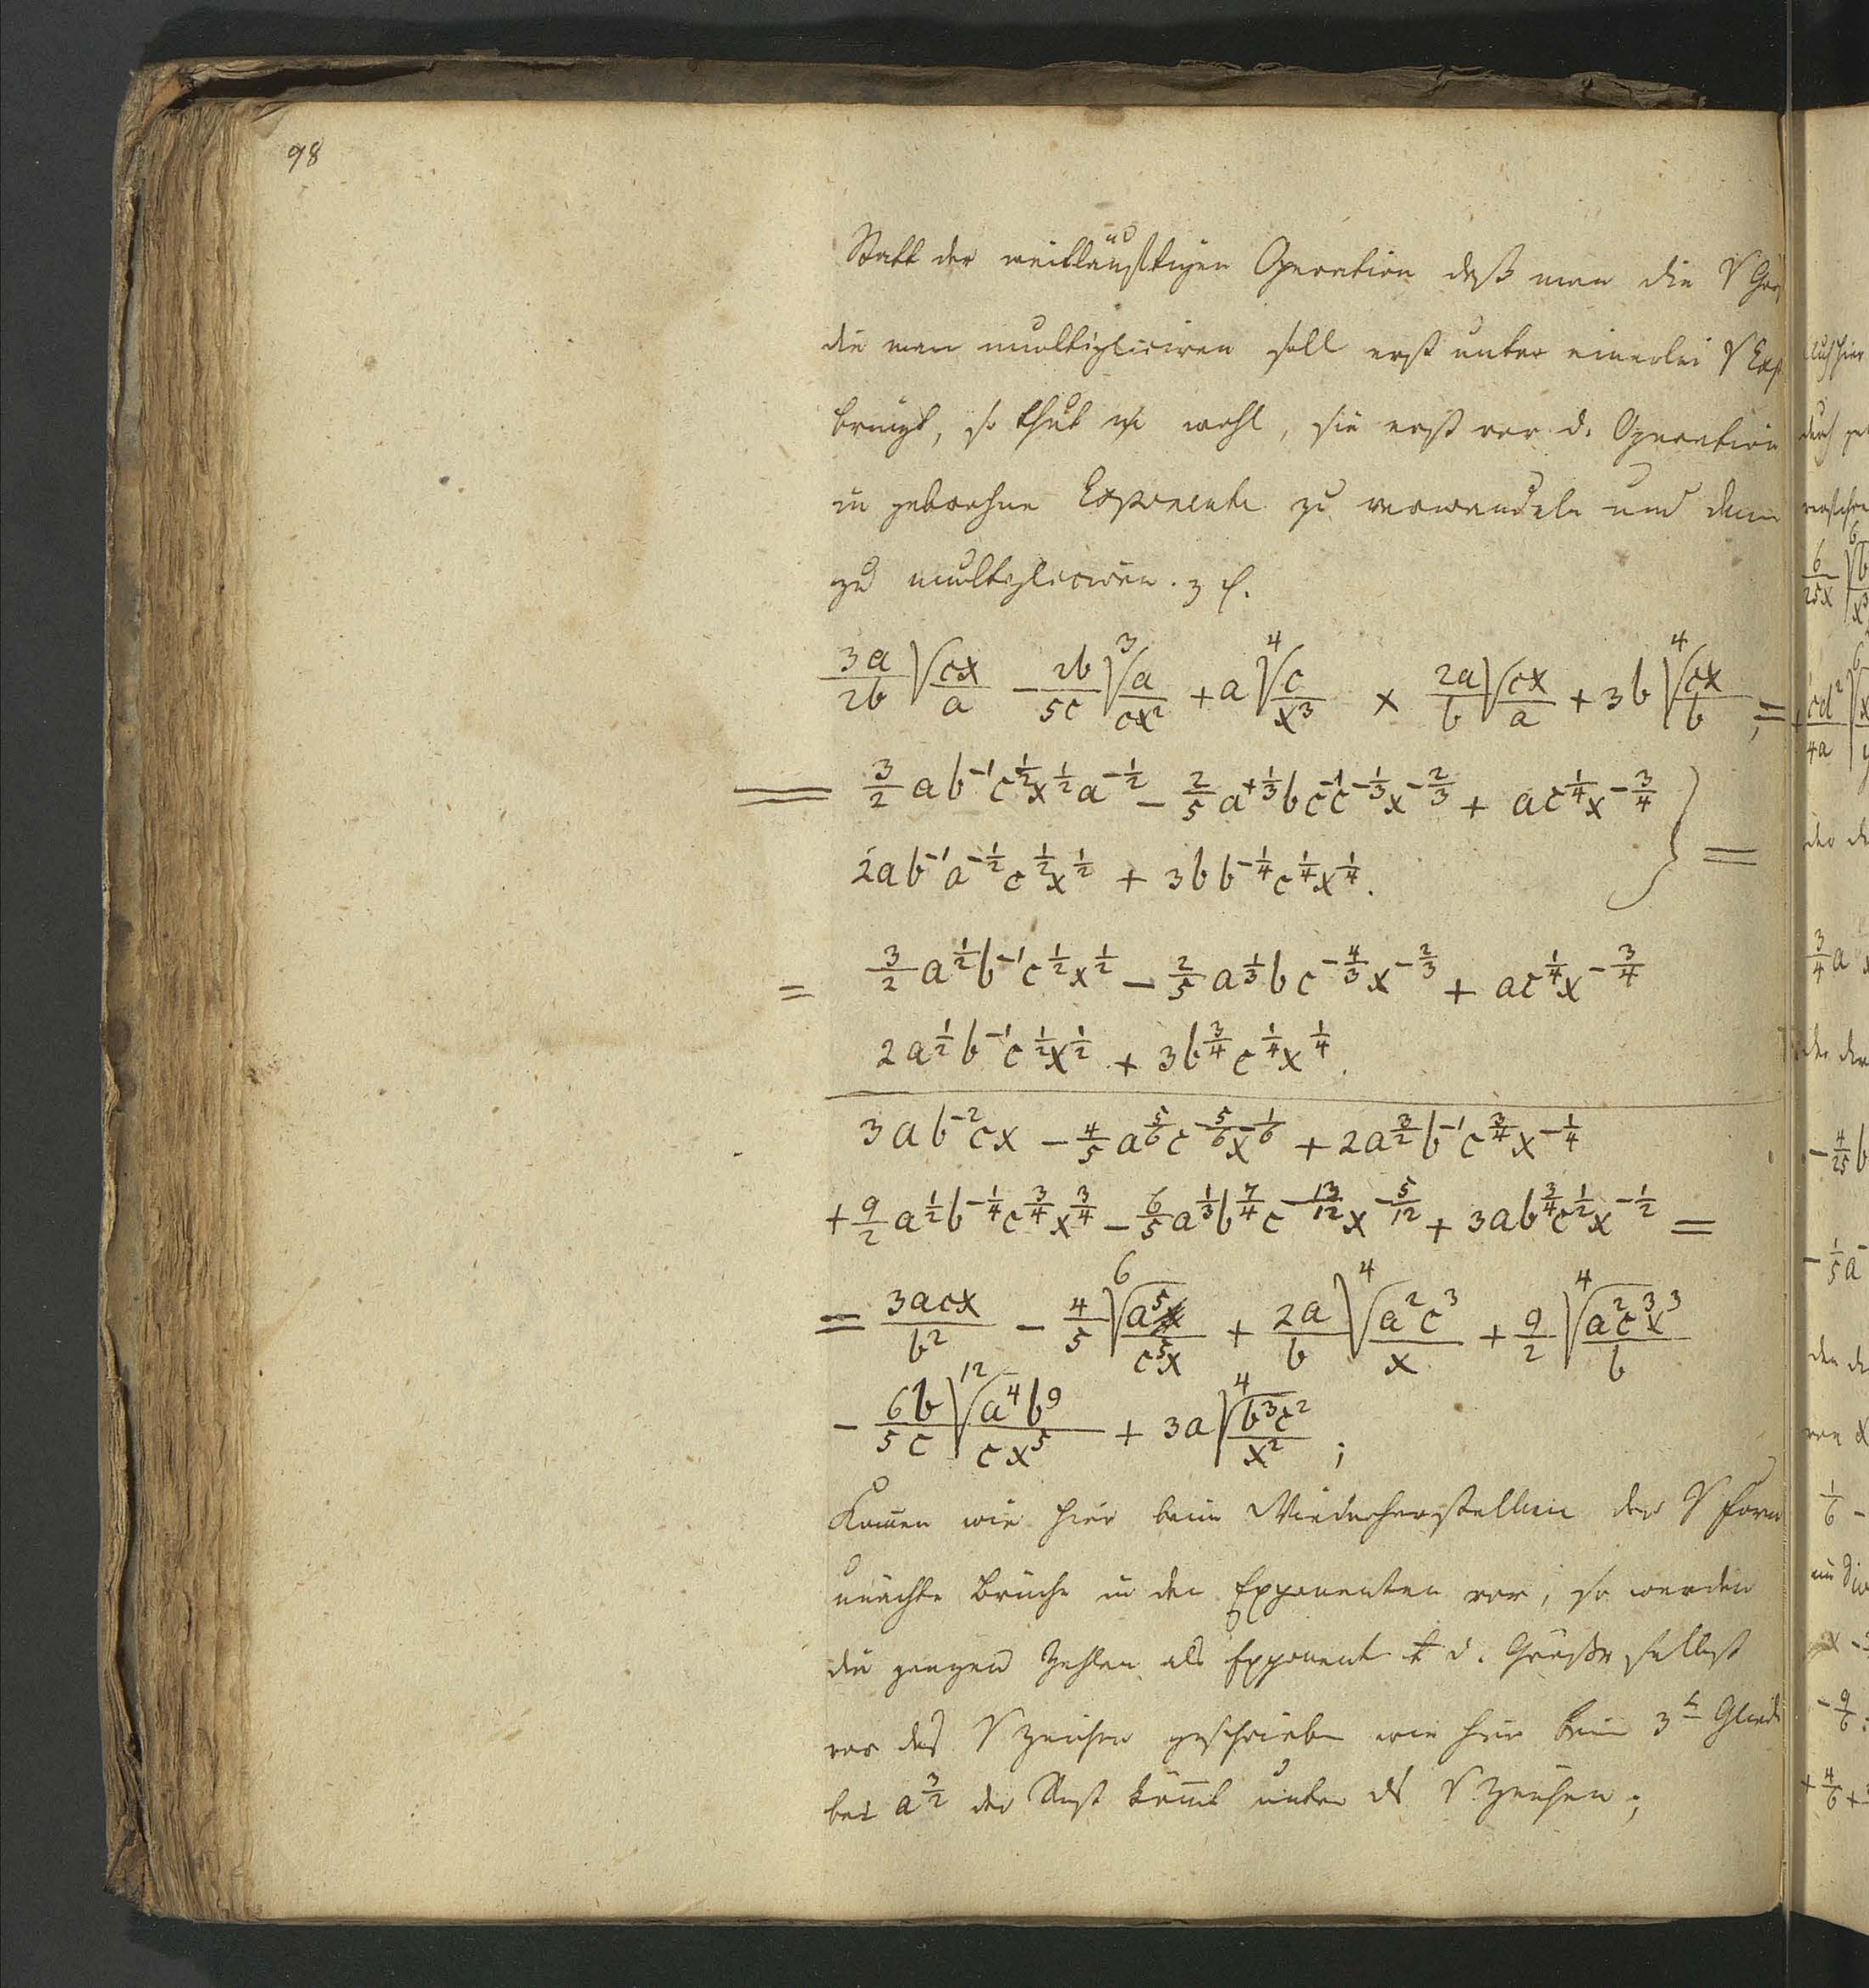 98
Statt der weitläuftigen Operation daß man die √ Grö
die man multipliciren soll erst unter einerlei √ Exp
bringt, so thut man wohl, sie erst vor d. Operation
in gebrochne Exponente zu verwandeln und dann
zu multipliciren. z. E.
3a/2b √(cx/a) − 2b/5c ∛(a/cx²) + a ∜(c/x³) × 2a/b √(cx/a) + 3b ∜(cx/b) ; =
= 3/2 ab^-1 c^1/2 x^1/2 a^-1/2 − 2/5 a^+1/3 b c^-1 c^-1/3 x^-2/3 + a c^1/4 x^-3/4 } =
2ab^-1 a^-1/2 c^1/2 x^1/2 + 3b b^-1/4 c^1/4 x^1/4.
= 3/2 a^1/2 b^-1 c^1/2 x^1/2 − 2/5 a^1/3 b c^-4/3 x^-2/3 + a c^1/4 x^-3/4
2a^1/2 b^-1 c^1/2 x^1/2 + 3b^3/4 c^1/4 x^1/4.
3ab^-2 cx − 4/5 a^5/6 c^-5/6 x^-1/6 + 2a^3/2 b^-1 c^3/4 x^-1/4
+ 9/2 a^1/2 b^-1/4 c^3/4 x^3/4 − 6/5 a^1/3 b^7/4 c^-13/12 x^-5/12 + 3ab^3/4 c^1/2 x^-1/2 =
= 3acx/b² − 4/5 ⁶√(a⁵/c⁵x) + 2a/b ⁴√(a²c³/x) + 9/2 ⁴√(a²c³x³/b)
− 6b/5c ¹²√(a⁴b⁹/cx⁵) + 3a ⁴√(b³c²/x²) ;
Kom̄en wie hier beim Wiederherstellen der √ Form
unächte Brüche in den Exponenten vor, so werden
die ganzen Zahlen als Exponent d. Größe selbst
vor das √ Zeichen geschrieben wie hier beim 3t Gliede
bei a^3/2 der Restköm̄t unter ds √ Zeichen ;